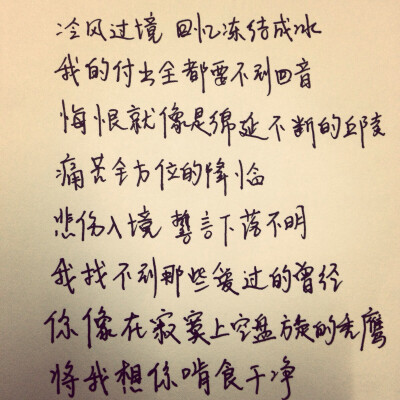 冷风过境 回忆冻结成冰
我的付出全都要不到回音
悔恨就像是绵延不断的丘陵
痛苦全方位的降临
悲伤入境 誓言下落不明
我找不到那些爱过的曾经
你像在寂寞上空盘旋的秃鹰
将我想你啃食干净